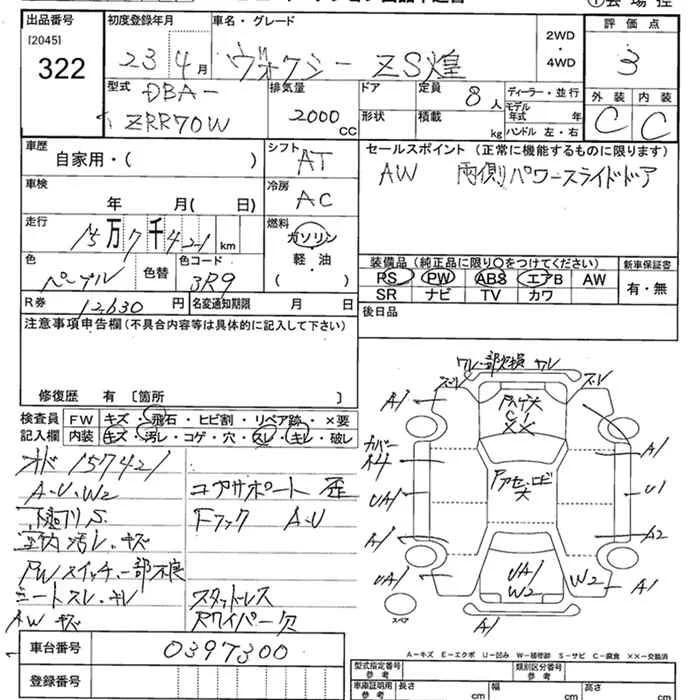 出品番号
[2045]
322
初度登録年月
23 4月
車名・グレード
ヴォクシー ZS煌
2WD
・
4WD
評価点
3
型式
DBA-
ZRR70W
排気量
2000
CC
ドア
形状
定員
8人
積載
kg
ディーラー・並行
モデル
年式 年
ハンドル 左・右
外装 内装
C C
車歴
自家用・( )
シフト
AT
セールスポイント (正常に機能するものに限ります)
AW 両側パワースライドドア
車検
年 月( 日)
冷房
AC
走行
15万7千421 km
燃料
ガソリン
軽・油
( )
色
パープル
色替
色コード
3R9
装備品 (純正品に限り〇をつけてください)
PS PW ABS エアB AW
SR ナビ TV カワ
新車保証書
有・無
R券
12,630 円
名変通知期限 月 日
後日品
注意事項申告欄 (不具合内容等は具体的に記入して下さい)
修復歴 有 [箇所 ]
検査員
記入欄
FW キズ・飛石・ヒビ割・リペア跡・×要
内装 キズ・汚レ・コゲ・穴・スレ・キレ・破レ
オド 157421
A・U・W2
下廻リS
室内汚レ・キズ
PWスイッチ一部不良
シートスレ・キレ
AWキズ
コアサポート 歪
Fフック A・U
スタットレス
Rワイパー欠
A1
A1
UA1
A1
UA1
A1
U1
A2
A1
W2
UA1
W2
A1
スペア
A-キズ E-エクボ U-凹み W-補修跡 S-サビ C-腐食 ××-交換済
車台番号
0397300
登録番号
型式指定番号
参考
類別区分番号
参考
車庫証明用
参考
長さ
cm
幅
cm
高さ
cm